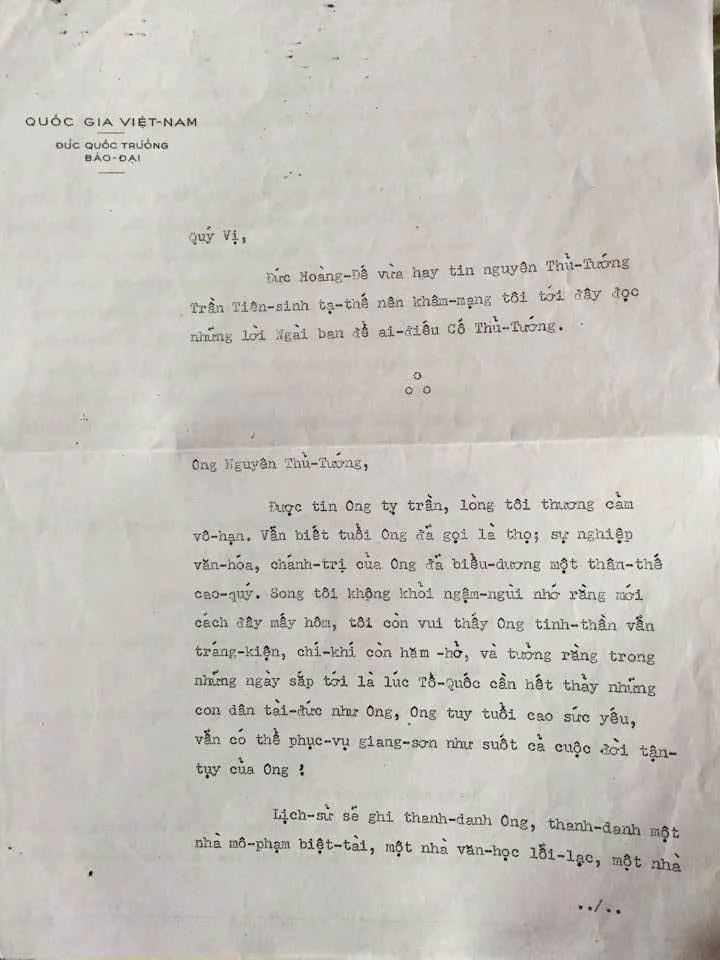 QUỐC GIA VIỆT-NAM
ĐỨC QUỐC TRƯỞNG
BẢO-ĐẠI
Quý Vị,
Đức Hoàng-Đế vừa hay tin nguyên Thủ-Tướng
Trần Tiên-sinh tạ-thế nên khâm-mạng tôi tới đây đọc
những lời Ngài ban để ai-điếu Cố Thủ-Tướng.
o
o o
Ong Nguyên Thủ-Tướng,
Được tin Ong tỵ trần, lòng tôi thương cảm
vô-hạn. Vẫn biết tuổi Ong đã gọi là thọ; sự nghiệp
văn-hóa, chánh-trị của Ong đã biểu-dương một thân-thế
cao-quý. Song tôi không khỏi ngậm-ngùi nhớ rằng mới
cách đây mấy hôm, tôi còn vui thấy Ong tinh-thần vẫn
tráng-kiện, chí-khí còn hăm -hở, và tưởng rằng trong
những ngày sắp tới là lúc Tổ-Quốc cần hết thảy những
con dân tài-đức như Ong, Ong tuy tuổi cao sức yếu,
vẫn có thể phục-vụ giang-sơn như suốt cả cuộc đời tận-
tụy của Ong !
Lịch-sử sẽ ghi thanh-danh Ong, thanh-danh một
nhà mô-phạm biệt-tài, một nhà văn-học lỗi-lạc, một nhà
../..